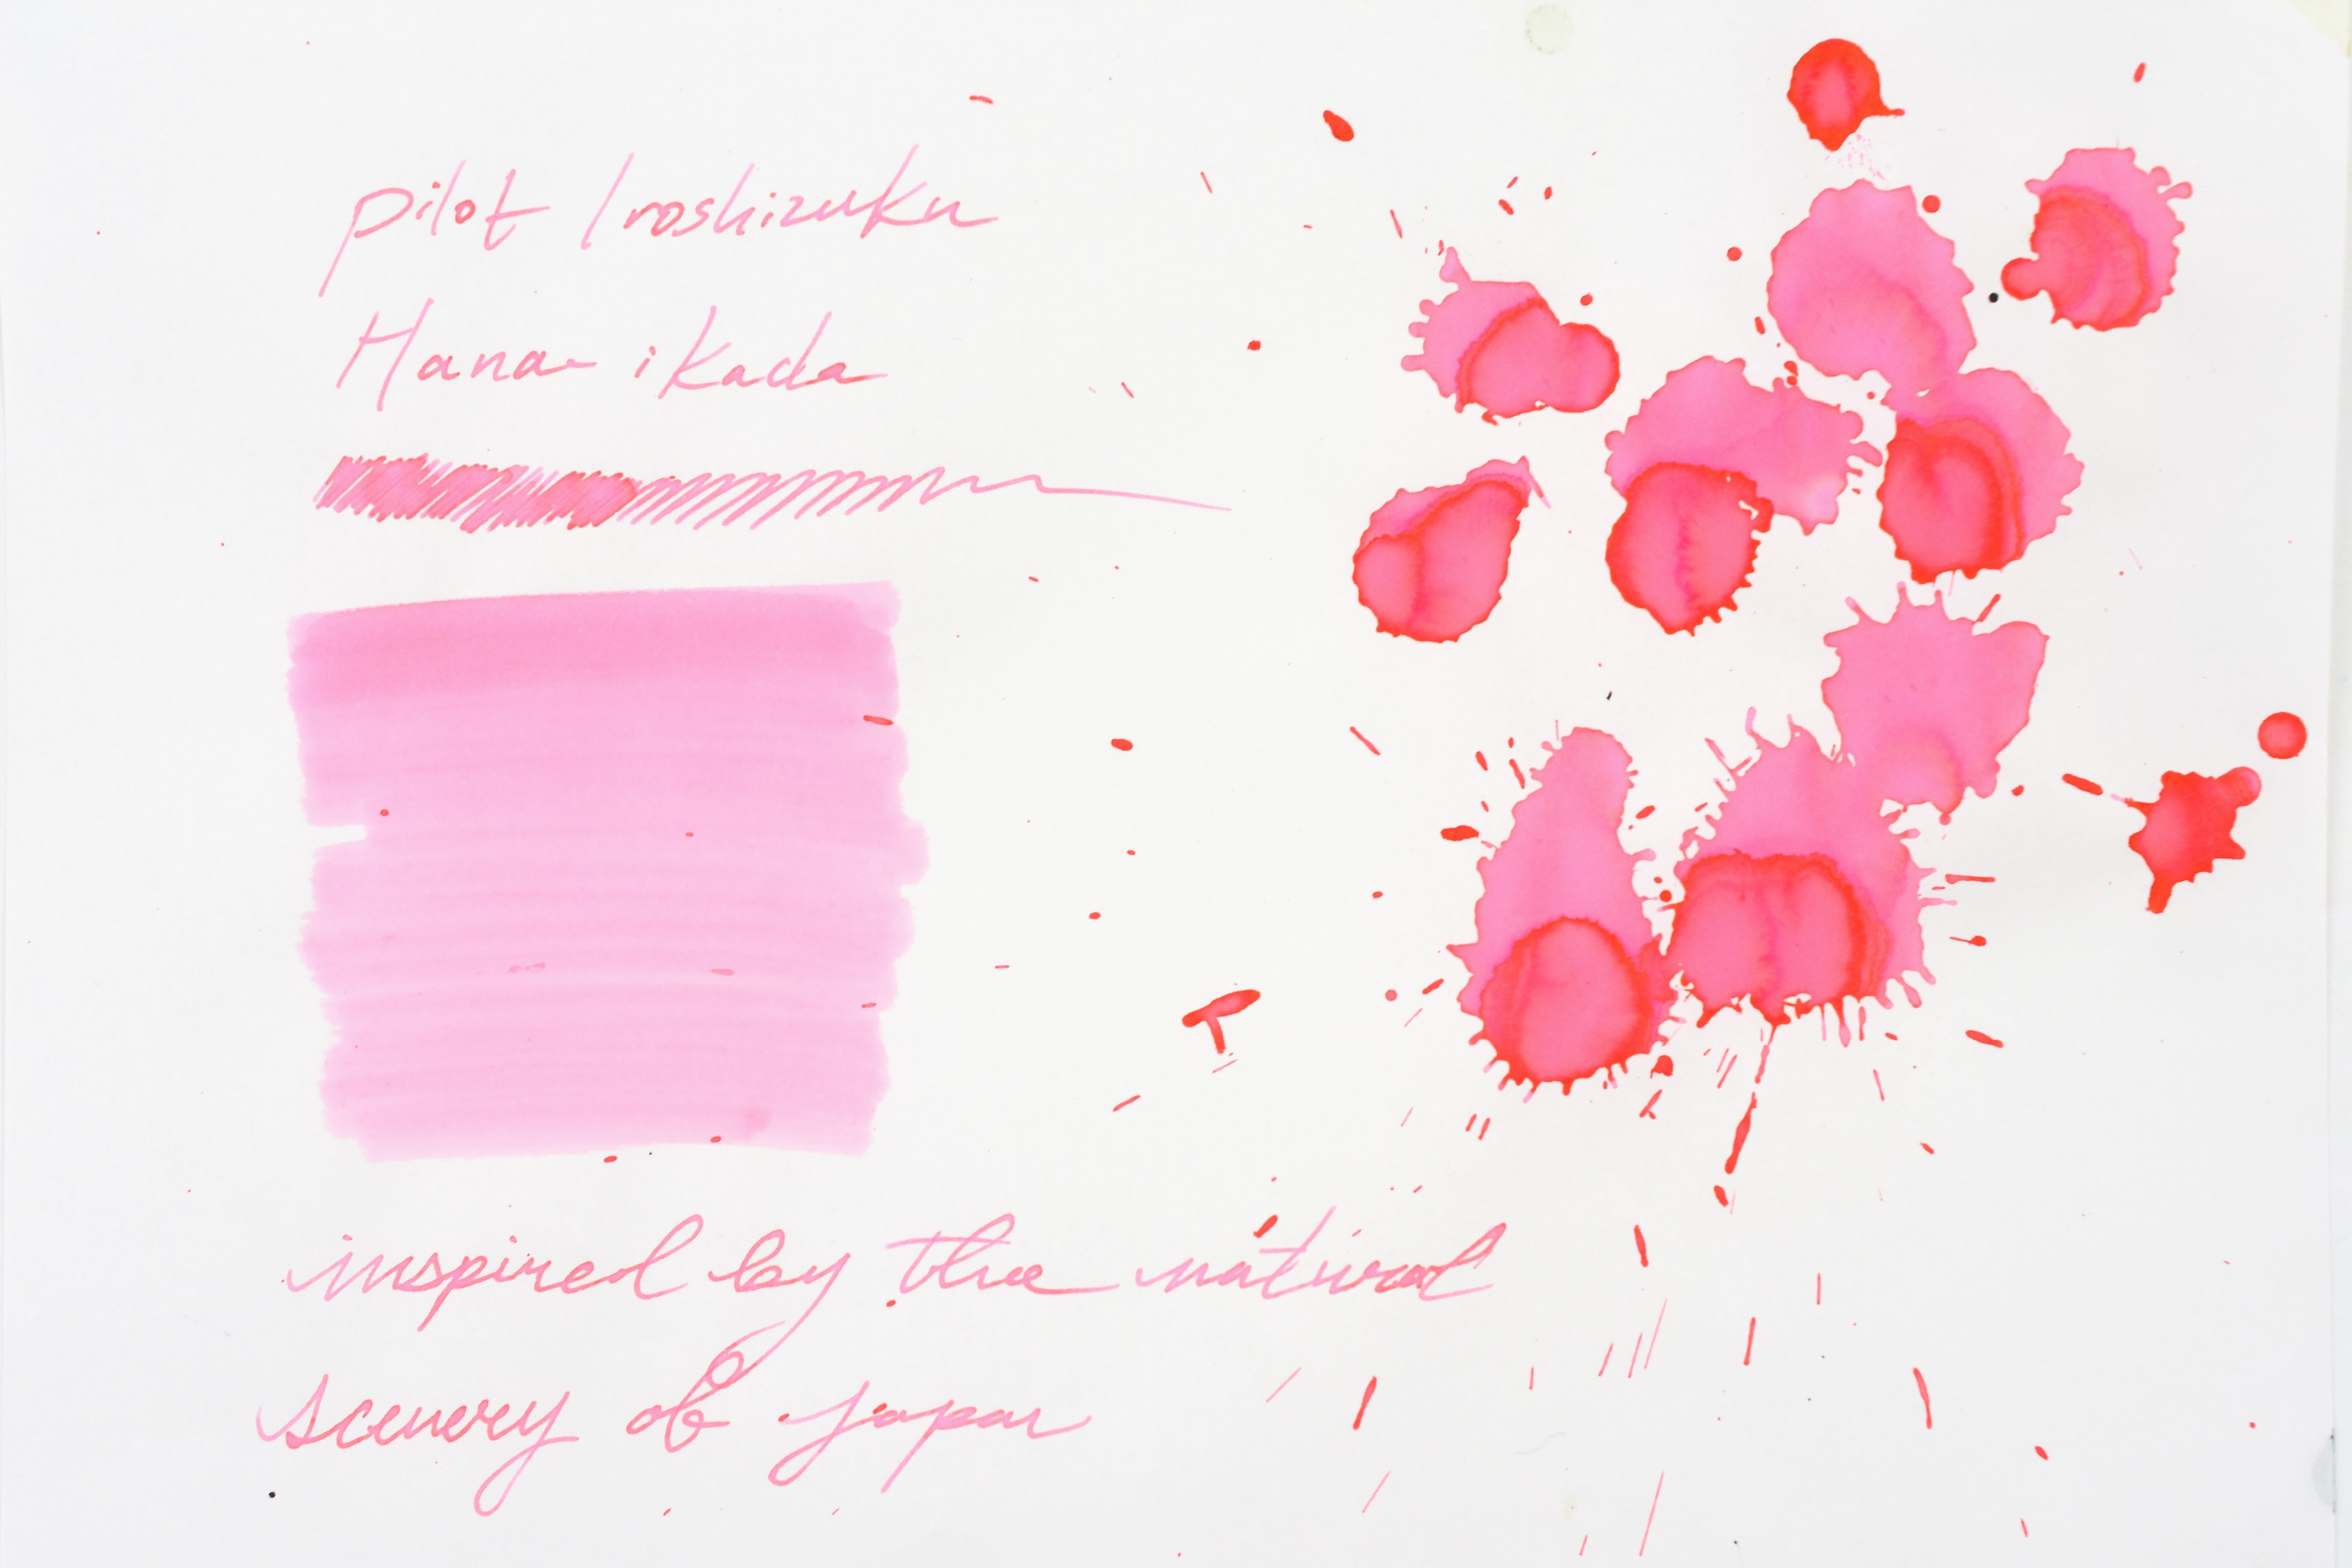 pilot Iroshizuku
Hana-ikada
inspired by the natural
scenery of Japan